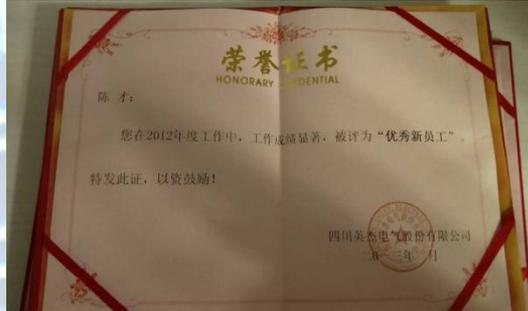 荣誉证书
HONORARY CREDENTIAL
陈才：
您在2012年度工作中，工作成绩显著，被评为“优秀新员工”。
特发此证，以资鼓励！
四川英杰电气股份有限公司
二〇一三年一月